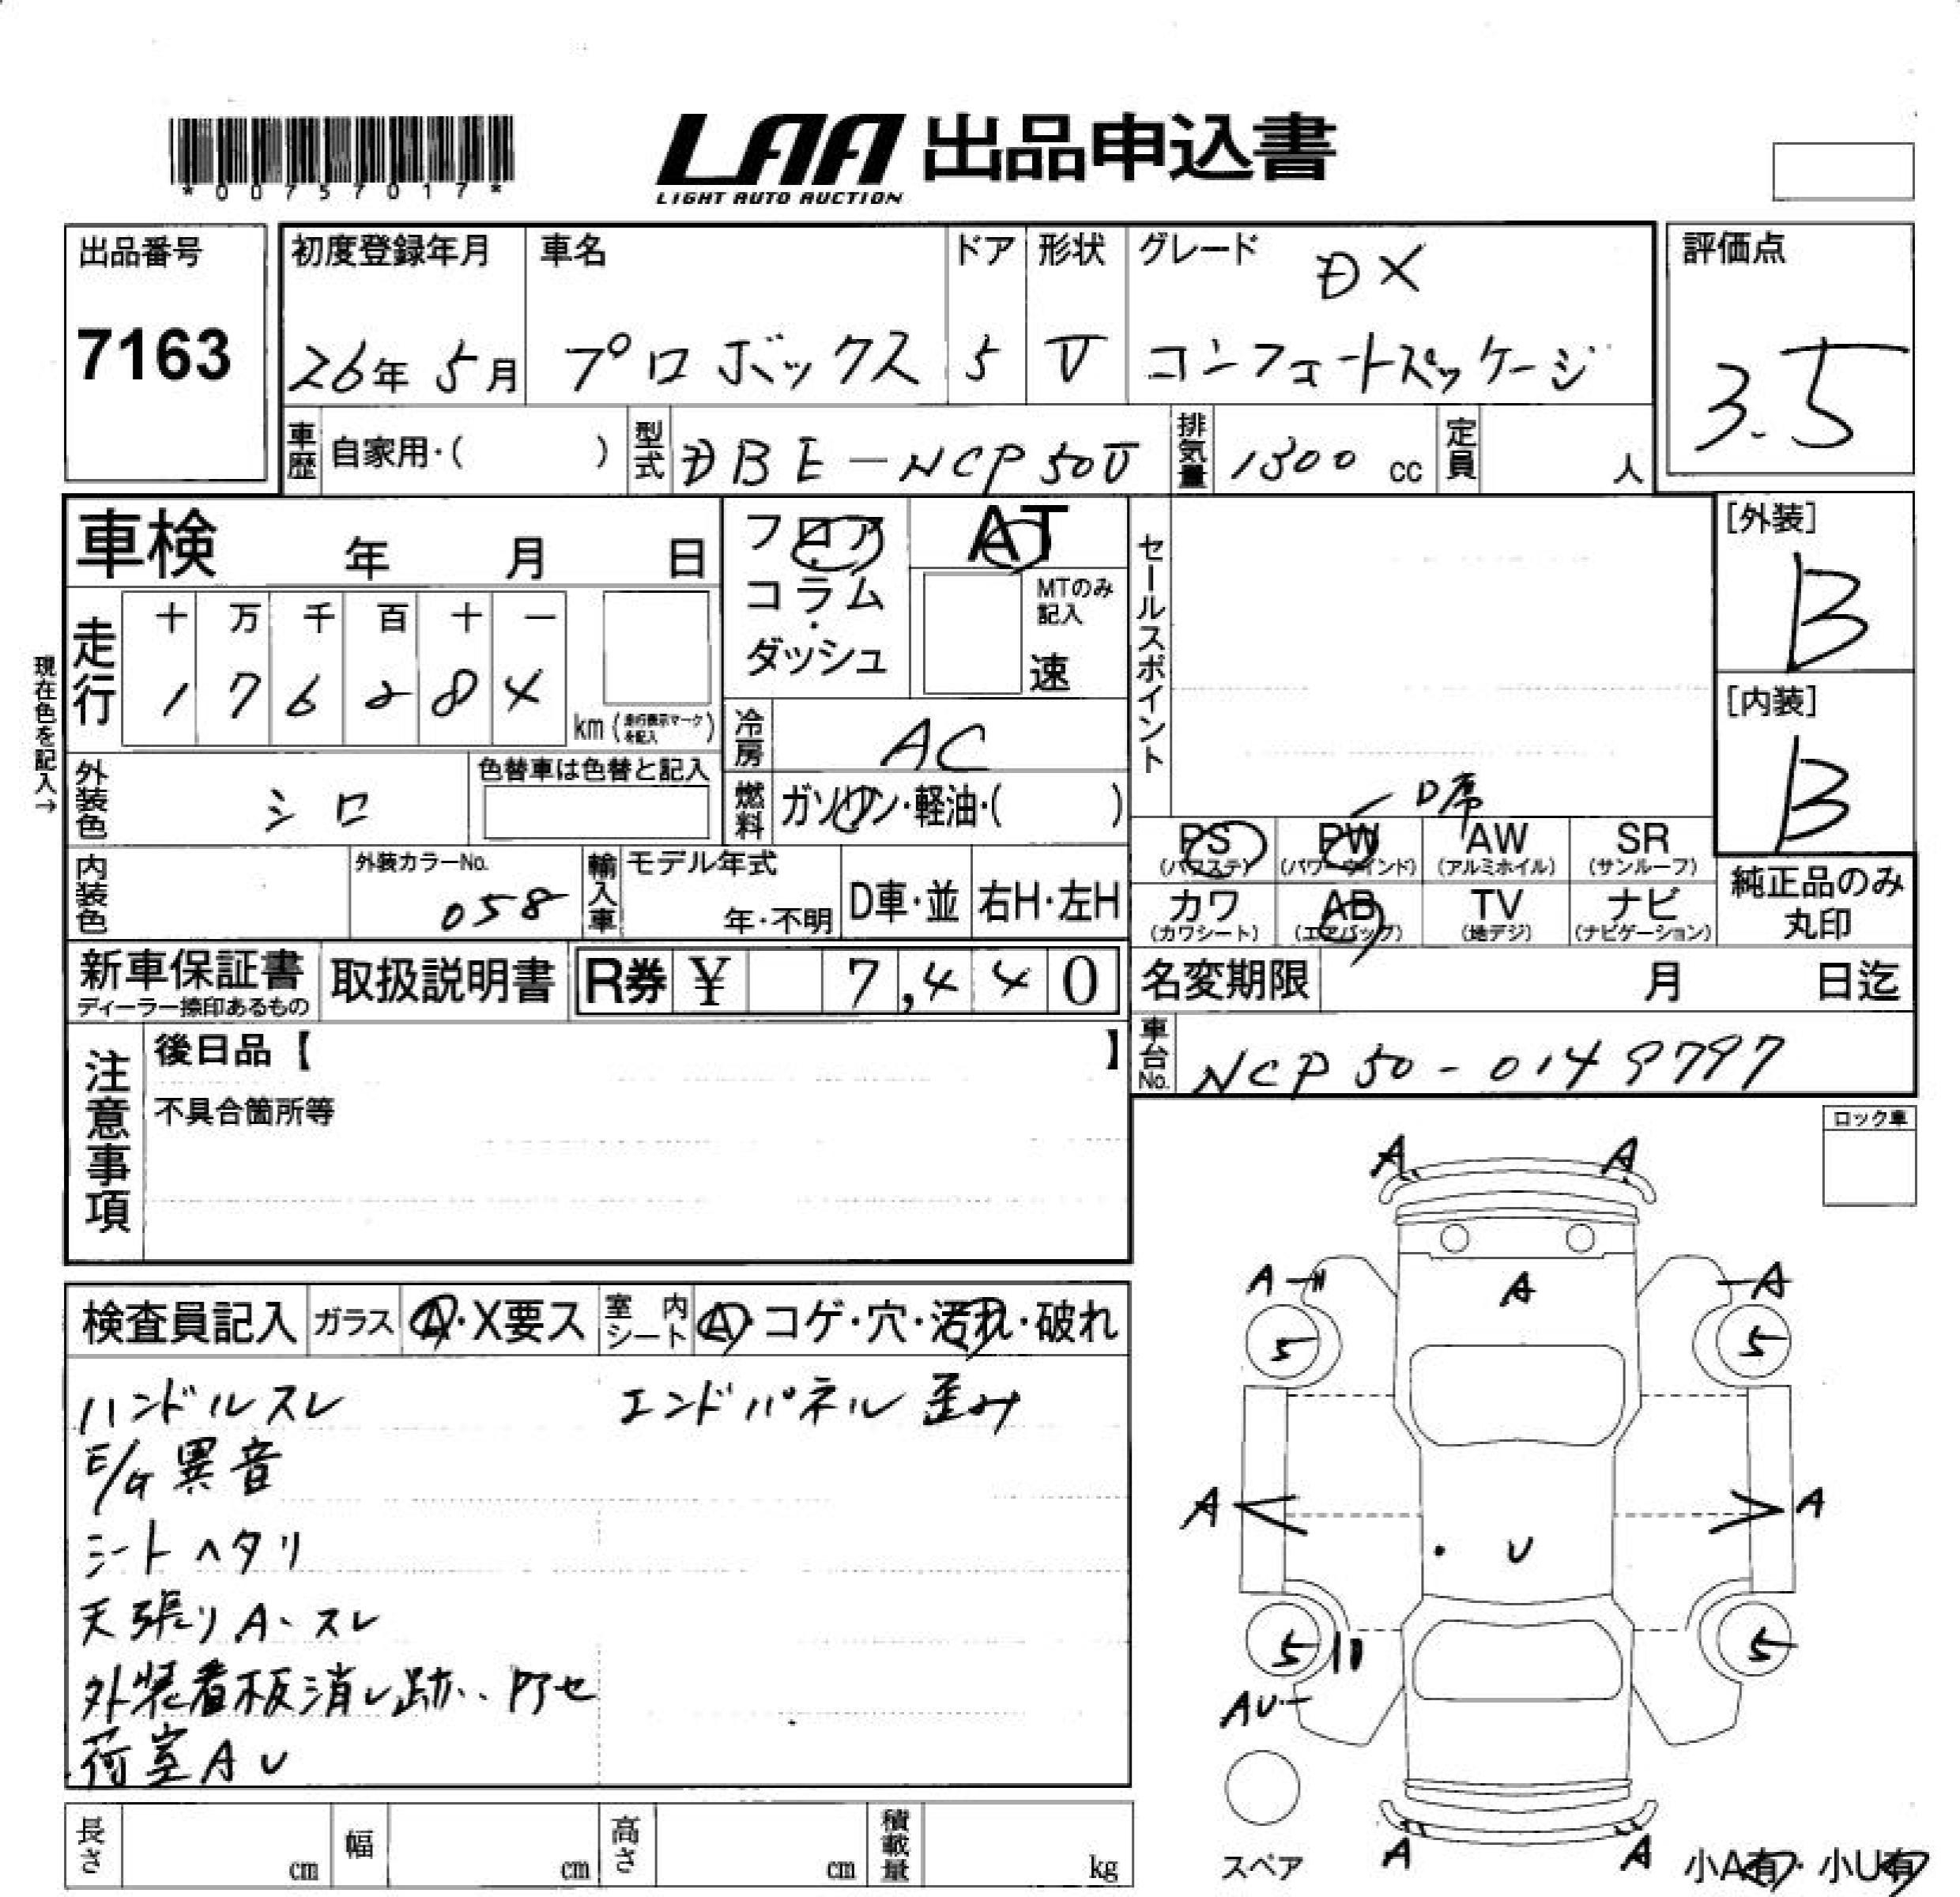 *00757017*
LAA 出品申込書
LIGHT AUTO AUCTION
出品番号
7163
初度登録年月
26年 5月
車名
プロボックス
ドア
5
形状
V
グレード
DX
コンフォートパッケージ
評価点
3.5
車歴 自家用・( )
型式 DBE-NCP50V
排気量 1300 cc
定員 人
車検 年 月 日
フロア・コラム・ダッシュ
AT
MTのみ記入
速
セールスポイント
[外装]
B
[内装]
B
現在色を記入→
走行
十 万 千 百 十 一
1 7 6 2 8 4
km (走行表示マークを記入)
冷房 AC
外装色 シロ
色替車は色替と記入
燃料 ガソリン・軽油・( )
D席
PS (パワステ)
PW (パワーウインド)
AW (アルミホイル)
SR (サンルーフ)
カワ (カワシート)
AB (エアバッグ)
TV (地デジ)
ナビ (ナビゲーション)
純正品のみ丸印
内装色
外装カラーNo.
058
輸入車
モデル年式
年・不明
D車・並
右H・左H
新車保証書
ディーラー捺印あるもの
取扱説明書
R券 ¥ 7,440
名変期限 月 日迄
車台No. NCP50-0149797
注意事項
後日品【 】
不具合箇所等
ロック車
検査員記入
ガラス A・X要ス
室内シート A・コゲ・穴・汚れ・破れ
ハンドルスレ
エンドパネル歪み
E/G異音
シートヘタリ
天張りA、スレ
外装看板消し跡、アセ
荷室AU
A A
A A
A
5 5
A A
U
5 5
AU
スペア
A A
小A有・小U有
長さ cm
幅 cm
高さ cm
積載量 kg